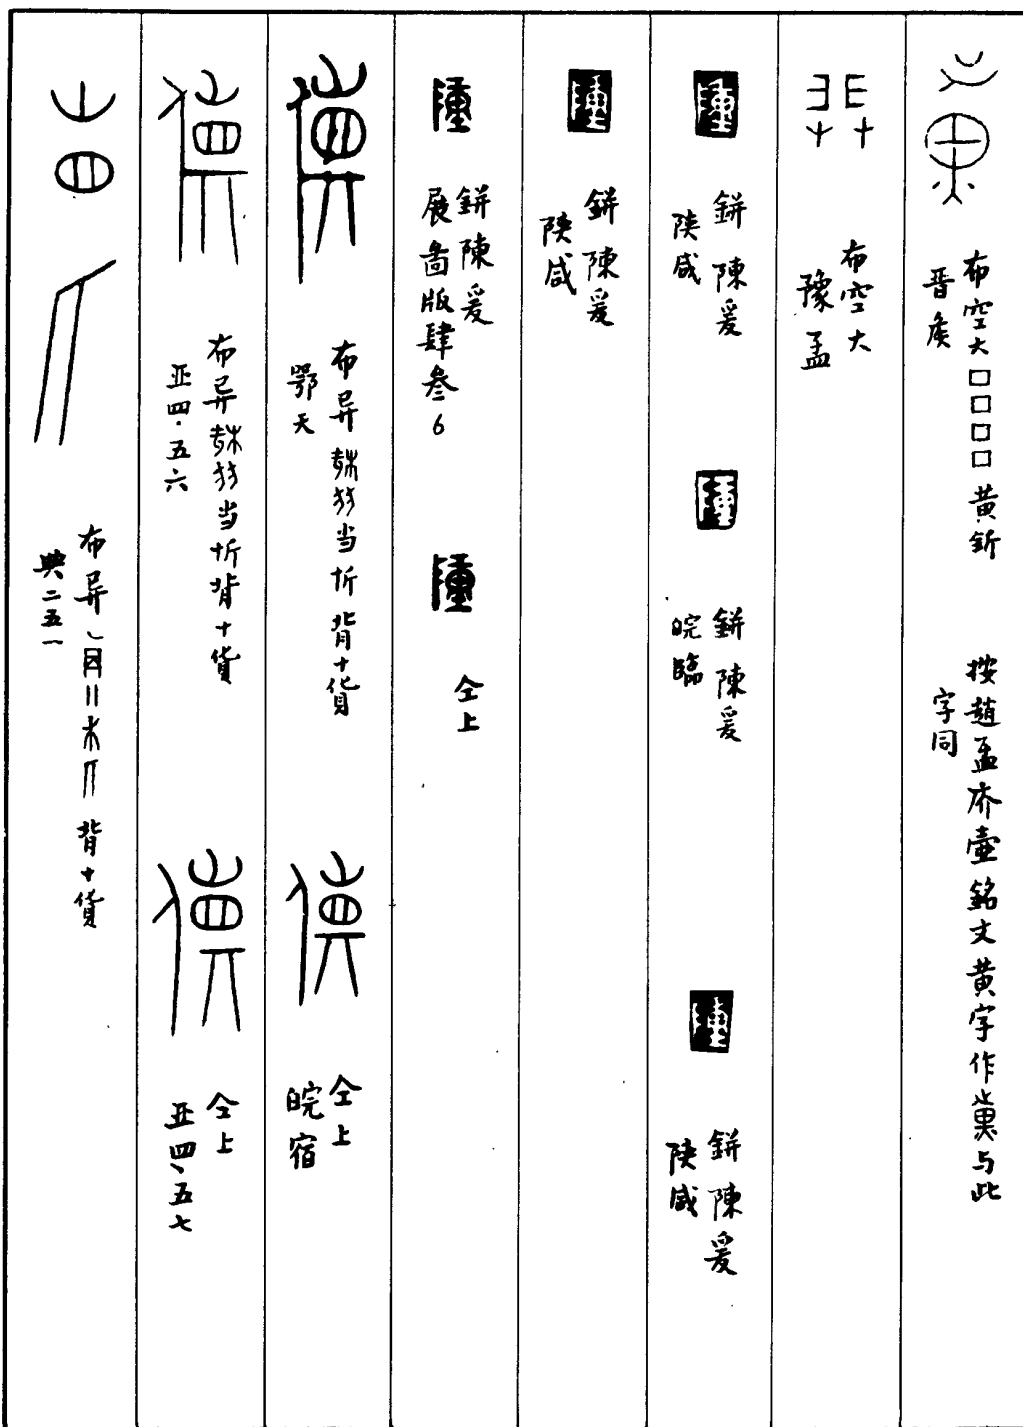 布空大□□□□黄釿
晋矦
按趙孟庎壶銘文黄字作與此
字同
布空大
豫孟
鉼陳爰
陕咸
鉼陳爰
皖臨
鉼陳爰
陕咸
鉼陳爰
陕咸
鉼陳爰
展啚版肆叁6
仝上
布异 当忻背十貨
鄂天
仝上
皖宿
布异 当忻背十貨
亚四·五六
仝上
亚四、五七
布异 背十貨
典二五一